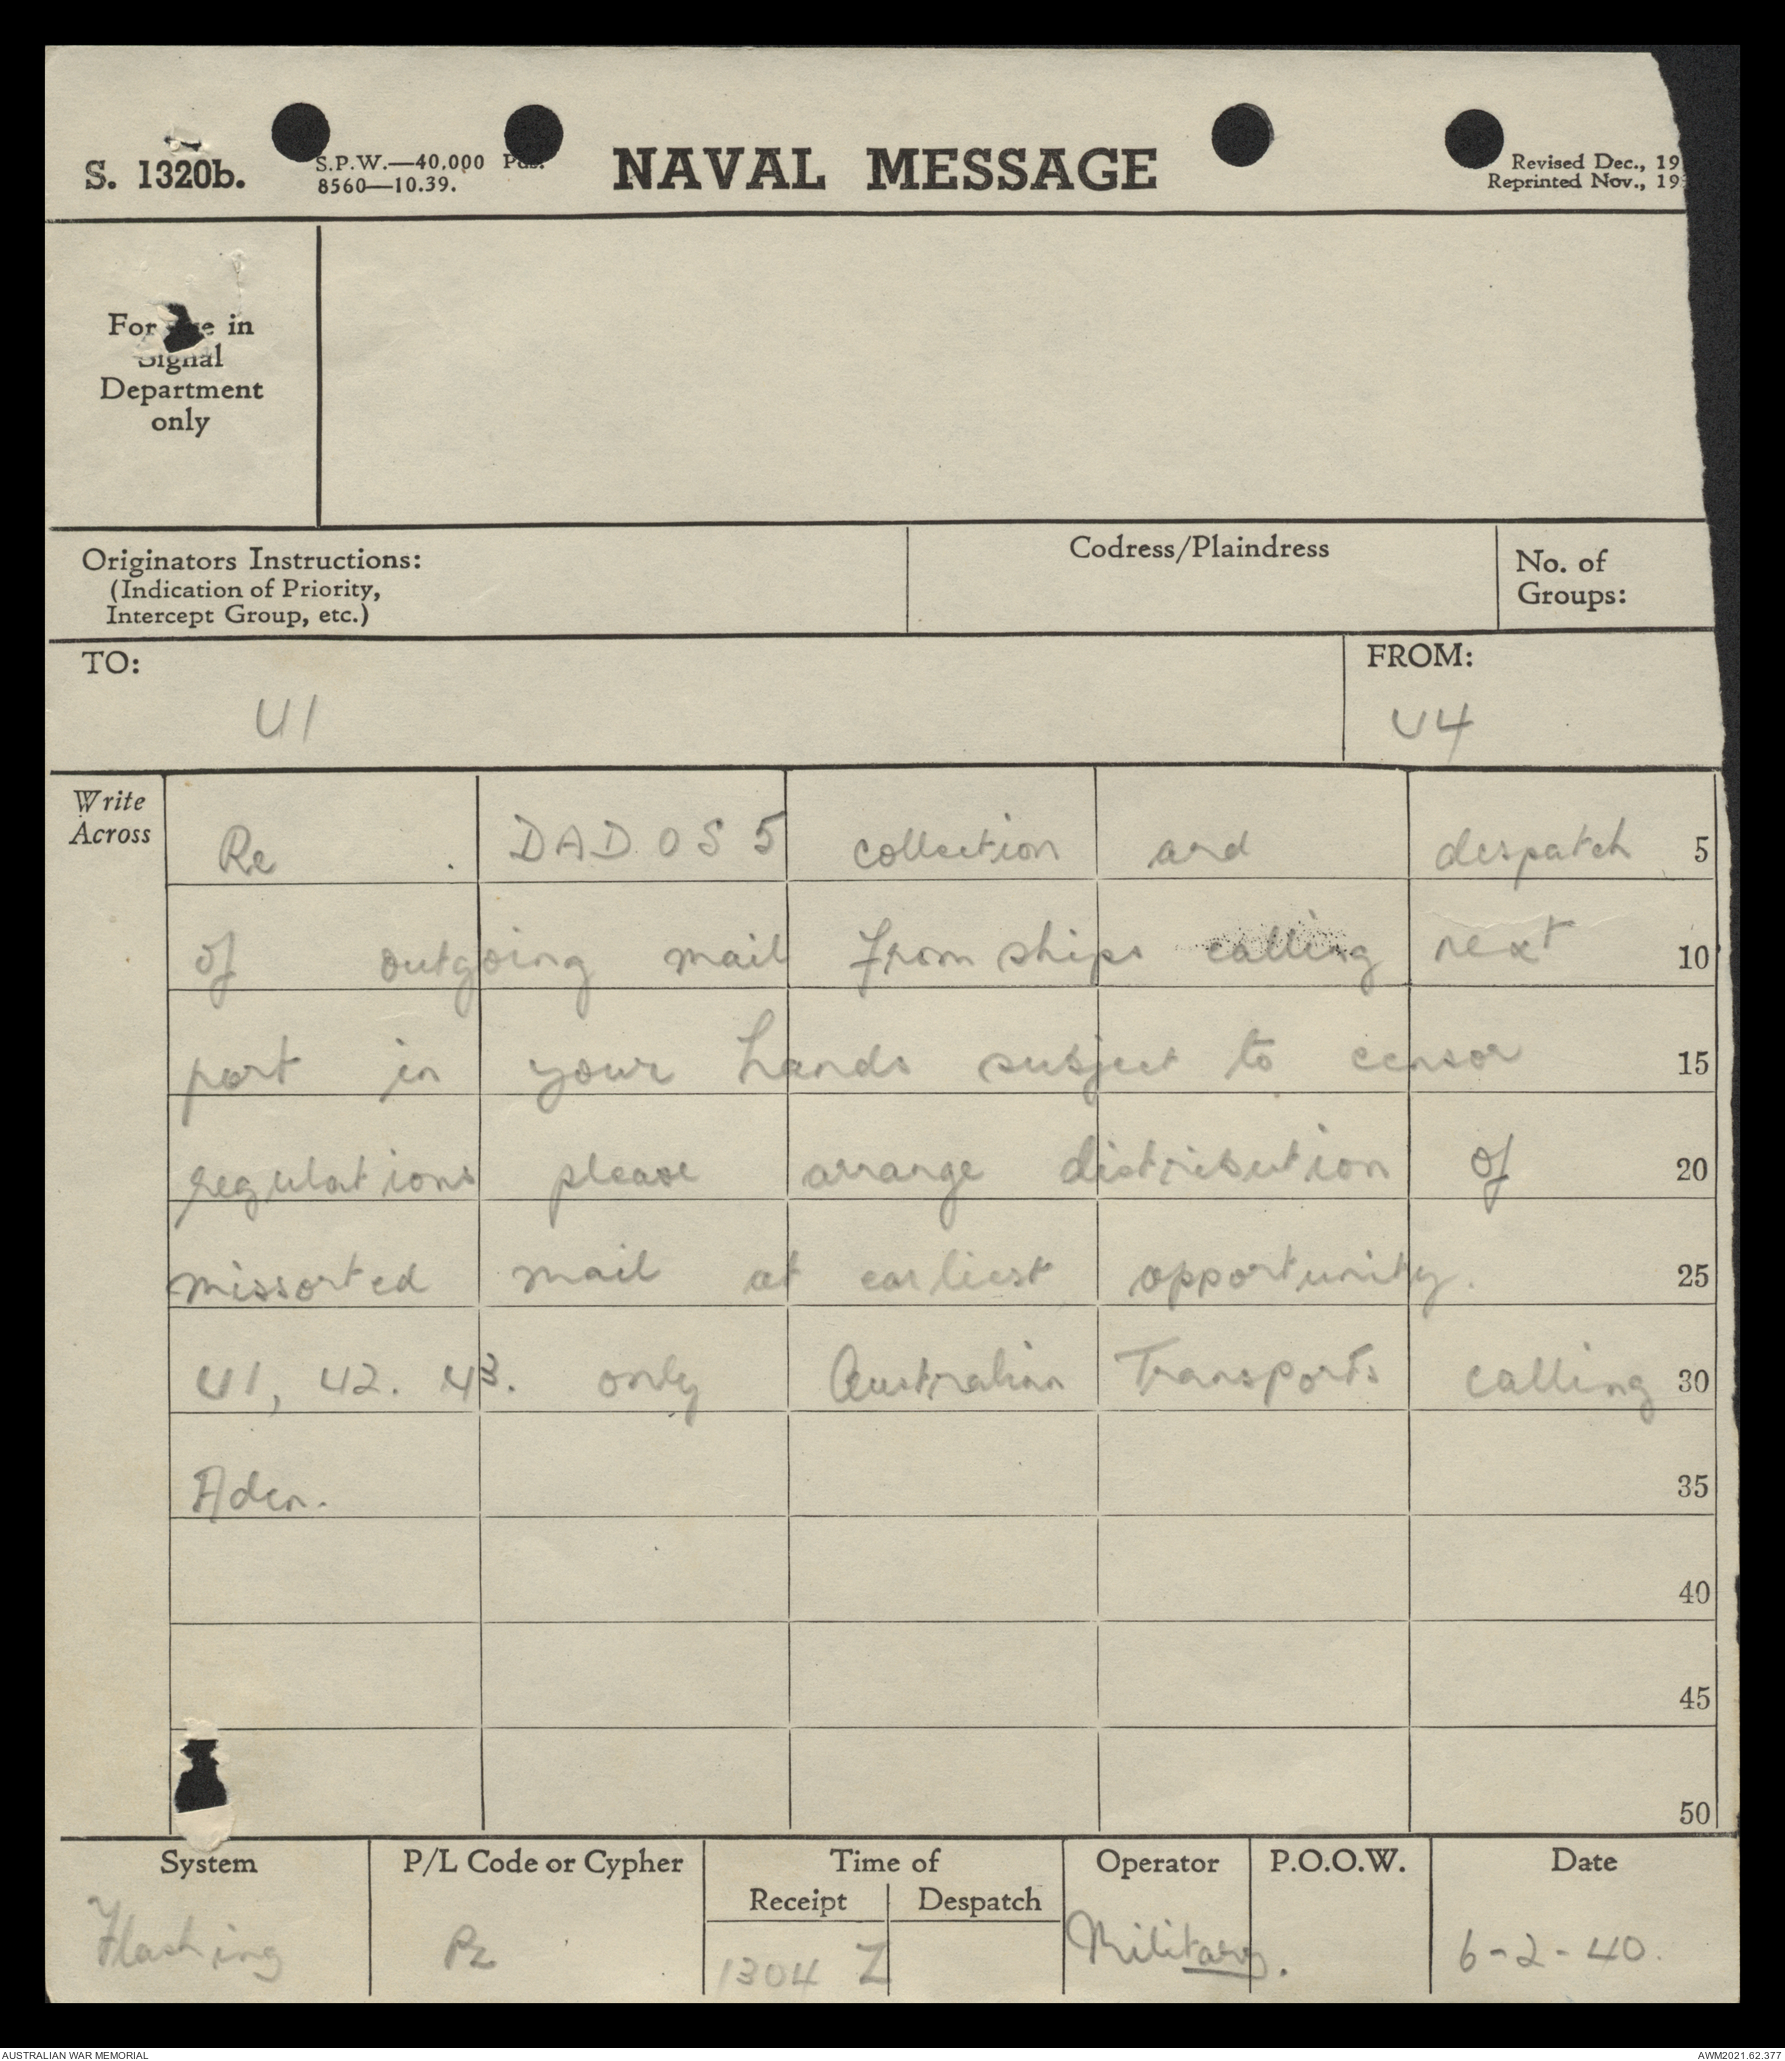 S. 1320b.
S.P.W.—40,000 Pds.
8560—10.39.
NAVAL MESSAGE
Revised Dec., 19
Reprinted Nov., 19
For in
Signal
Department
only
Originators Instructions:
(Indication of Priority,
Intercept Group, etc.)
Codress/Plaindress
No. of
Groups:
TO:
U1
FROM:
U4
Write
Across
Re . DAD OS 5 collection and despatch 5
of outgoing mail from ships calling next 10
port in your hands subject to censor 15
regulations please arrange distribution of 20
missorted mail at earliest opportunity. 25
U1, U2. U3. only Australian Transports calling 30
Aden. 35
40
45
50
System
P/L Code or Cypher
Time of
Receipt
Despatch
Operator
P.O.O.W.
Date
Flashing
P/L
1304 Z
Military.
6-2-40.
AUSTRALIAN WAR MEMORIAL
AWM2021.62.377